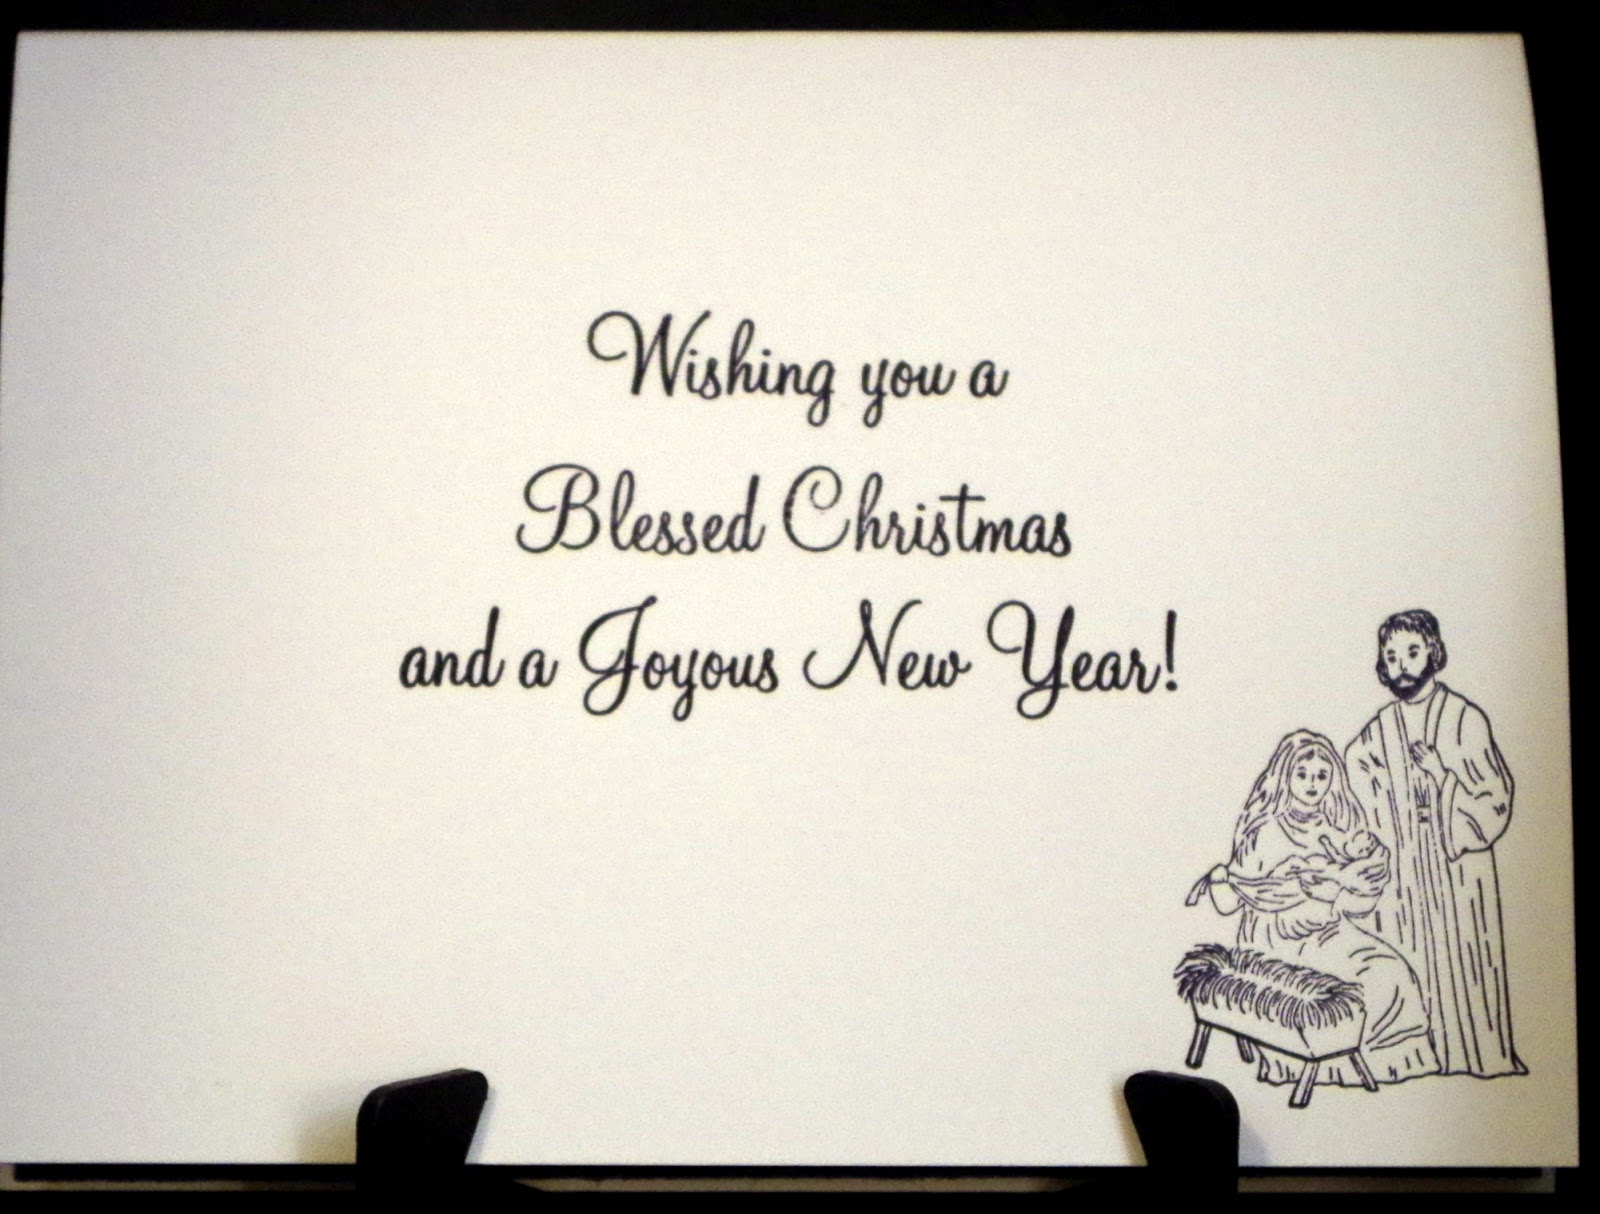 Wishing you a
Blessed Christmas
and a Joyous New Year!